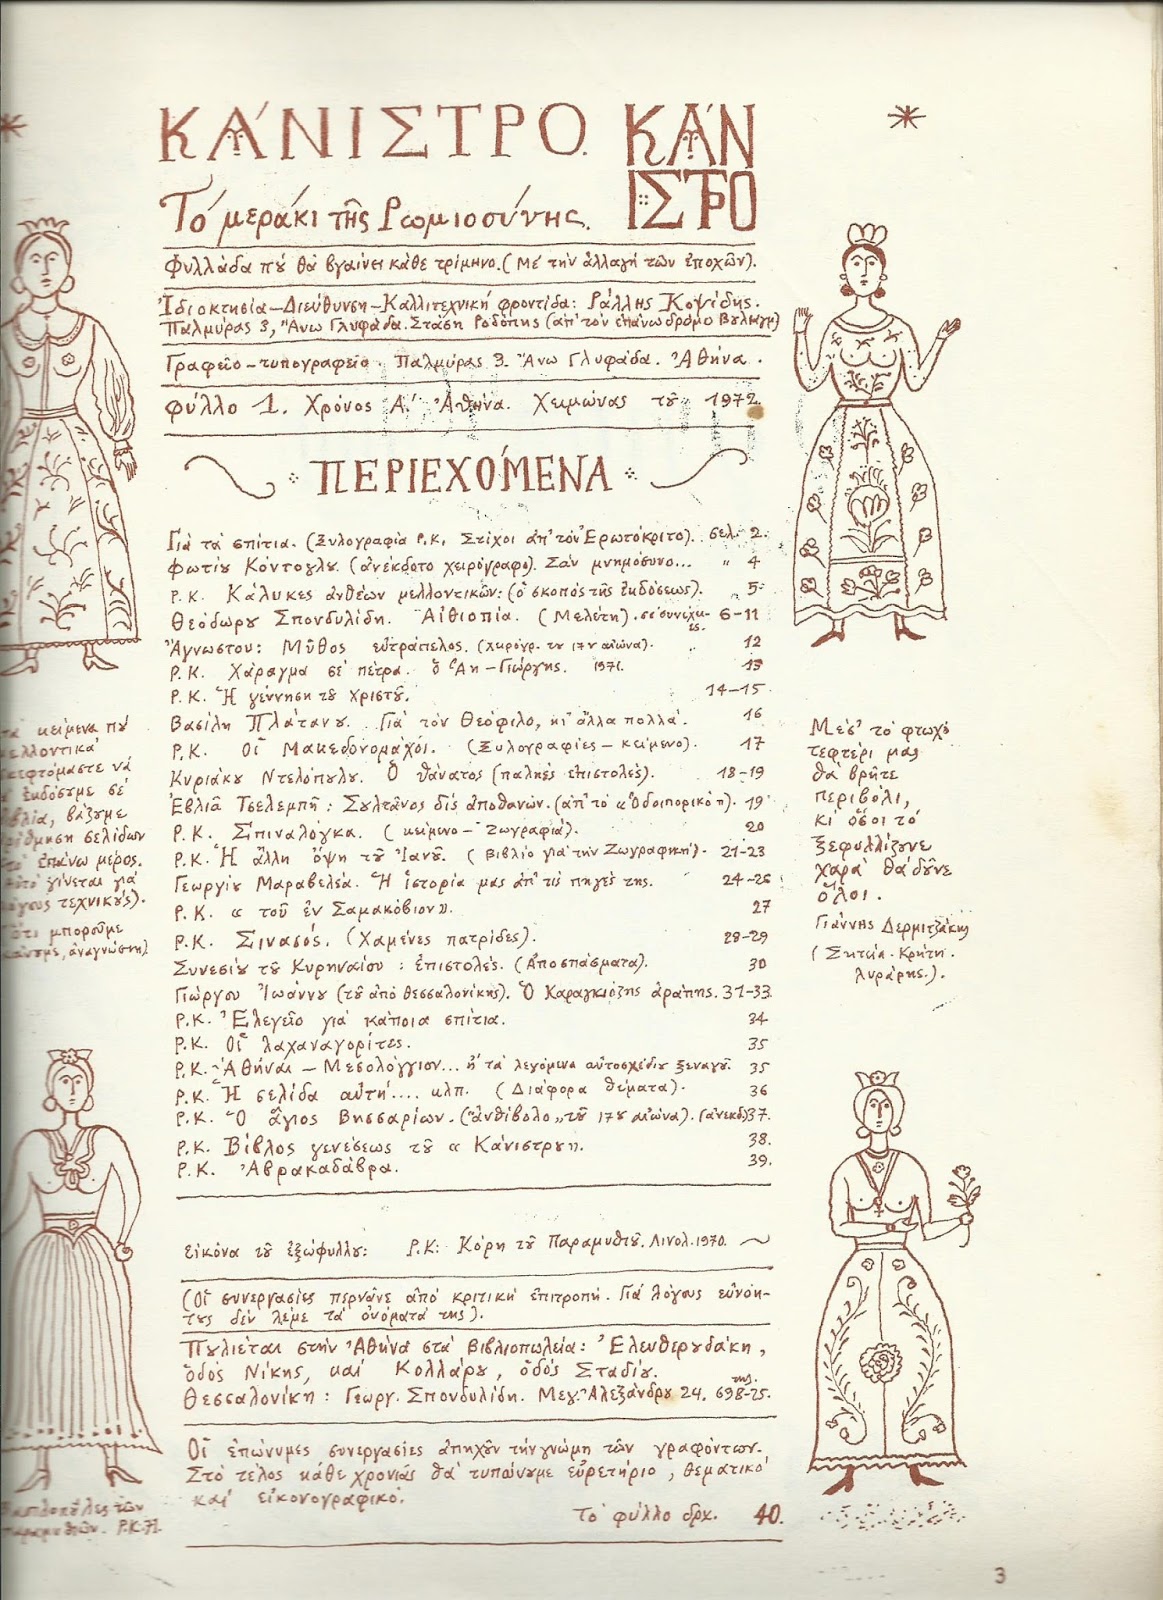 ΚΆΝΙΣΤΡΟ.
ΚΆΝ
ΙΣΤΡΟ
Τό μεράκι τῆς Ρωμιοσύνης.
Φυλλάδα πȣ́ θὰ βγαίνει κάθε τρίμηνο. (Μέ τήν ἀλλαγή τῶν ἐποχῶν).
Ἰδιοκτησία – Διεύθυνση – Καλλιτεχνική φροντίδα: Ράλλης Κοψίδης.
Παλμύρας 3, Ἄνω Γλυφάδα. Στάση Ροδόπης (ἀπ' τόν ἐπάνω δρόμο Βουλιαγμ)
Γραφεῖο – τυπογραφεῖο Παλμύρας 3. Ἄνω Γλυφάδα. Ἀθήνα.
Φύλλο 1. Χρόνος Α΄. Ἀθήνα. Χειμώνας τȣ͂ 1972.
ΠΕΡΙΕΧΌΜΕΝΑ
Γιά τά σπίτια. (Ξυλογραφία Ρ.Κ. Στίχοι ἀπ' τόν Ἐρωτόκριτο). σελ. 2.
Φωτίȣ Κόντογλȣ. (ἀνέκδοτο χειρόγραφο). Σάν μνημόσυνο... " 4
Ρ.Κ. Κάλυκες ἀνθέων μελλοντικῶν: (ὁ σκοπός τῆς ἐκδόσεως). 5.
Θεόδωρȣ Σπονδυλίδη. Αἰθιοπία. (Μελέτη). σέ συνέχειες. 6-11
Ἄγνωστου: Μῦθος εὐτράπελος. (χειρόγρ. τȣ 17ȣ αἰώνα). " 12
Ρ.Κ. Χάραγμα σέ πέτρα. ὁ Ἅη-Γιώργης. 1971. 13
Ρ.Κ. Ἡ γέννηση τȣ͂ Χριστȣ͂. 14-15.
Βασίλη Πλάτανȣ. Γιά τόν Θεόφιλο, κι' ἄλλα πολλά. 16
Ρ.Κ. Οἱ Μακεδονομάχοι. (Ξυλογραφίες – κείμενο). 17
Κυριάκȣ Ντελόπȣλȣ. Ὁ θάνατος (παληές ἐπιστολές). 18-19
Ἐβλιᾶ Τσελεμπῆ: Σουλτάνος δίς ἀποθανών. (ἀπ' τό «Ὁδοιπορικό»). 19
Ρ.Κ. Σπιναλόγκα. (κείμενο – ζωγραφιά). 20
Ρ.Κ. Ἡ ἄλλη ὄψη τȣ͂ Ἰανȣ͂. (Βιβλίο γιά τήν Ζωγραφική). 21-23
Γεωργίȣ Μαραβελέα. Ἡ ἱστορία μας ἀπ' τίς πηγές της. 24-26
Ρ.Κ. « τοῦ ἐν Σαμακόβιον». 27
Ρ.Κ. Σινασός. (Χαμένες πατρίδες). 28-29
Συνεσίȣ τȣ͂ Κυρηναίου: ἐπιστολές. (Ἀποσπάσματα). 30
Γιώργου Ἰωάννȣ (τȣ͂ ἀπό Θεσσαλονίκης). Ὁ Καραγκιόζης ἀράπης. 31-33
Ρ.Κ. Ἐλεγεῖο γιά κάποια σπίτια. 34
Ρ.Κ. Οἱ λαχαναγορίτες. 35
Ρ.Κ. Ἀθῆναι – Μεσολόγγιον... ἤ τά λεγόμενα αὐτοσχέδιȣ ξεναγȣ͂. 35
Ρ.Κ. Ἡ σελίδα αὐτή.... κλπ. (Διάφορα θέματα). 36
Ρ.Κ. Ὁ ἅγιος Βησσαρίων. ("ἀνθίβολο" τȣ͂ 17ȣ αἰώνα). (ἀνέκδ.) 37.
Ρ.Κ. Βίβλος γενέσεως τȣ͂ «Κάνιστρȣ». 38.
Ρ.Κ. Ἀβρακαδάβρα. 39.
Εἰκόνα τȣ͂ ἐξώφυλλȣ: Ρ.Κ: Κόρη τȣ͂ Παραμυθιȣ͂. Λινολ. 1970.
(Οἱ συνεργασίες περνᾶνε ἀπό κριτική ἐπιτροπή. Γιά λόγους εὐνόη-
τȣς δέν λέμε τά ὀνόματά της).
Πȣλιέται στήν Ἀθήνα στά βιβλιοπωλεῖα: Ἐλευθερȣδάκη,
ὁδός Νίκης, καί Κολλάρȣ, ὁδός Σταδίȣ.
Θεσσαλονίκη: Γεωργ. Σπονδυλίδη. Μεγ. Ἀλεξάνδρȣ 24. τηλ. 698-25.
Οἱ ἐπώνυμες συνεργασίες ἀπηχȣ͂ν τήν γνώμη τῶν γραφόντων.
Στό τέλος κάθε χρονιᾶς θά τυπώνȣμε εὑρετήριο, θεματικό
καί εἰκονογραφικό.
Τό φύλλο δρχ. 40.
τά κείμενα πȣ́
μελλοντικά
σκεφτόμαστε νά
ἐκδόσȣμε σέ
βιβλία, βάζȣμε
ἀρίθμηση σελίδων
στό ἐπάνω μέρος.
Αὐτό γίνεται γιά
λόγȣς τεχνικȣ́ς).
Ὅ,τι μπορȣ͂με
κάνȣμε, ἀναγνώστη).
τῶν
παραμυθιῶν. Ρ.Κ. 71.
Μέσ' τό φτωχό
τεφτέρι μας
θά βρῆτε
περιβόλι,
κι ὅσοι τό
ξεφυλλίζȣνε
χαρά θά δȣ͂νε
ὅλοι.
Γιάννης Δερμιτζάκης
(Σητεία. Κρήτη.
λυράρης.).
3